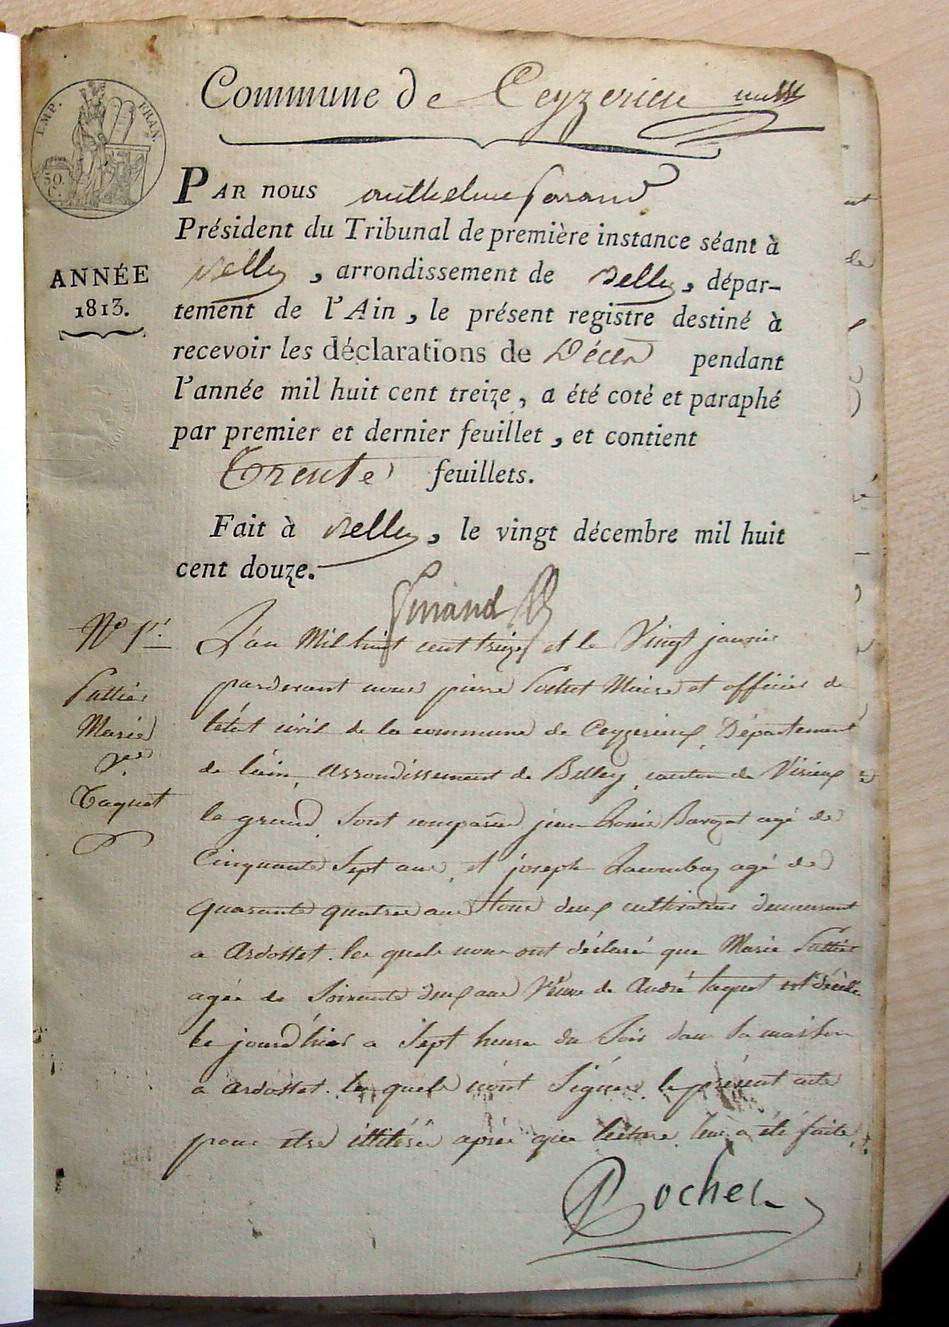 Commune de Ceyzerieu
IMP. FRAN.
50. C.
PAR nous
Président du Tribunal de première instance séant à
ANNÉE
1813.
Belley, arrondissement de Belley, dépar-
tement de l'Ain, le présent registre destiné à
recevoir les déclarations de Décès pendant
l'année mil huit cent treize, a été coté et paraphé
par premier et dernier feuillet, et contient
Trente feuillets.
Fait à Belley, le vingt décembre mil huit
cent douze.
N° 1er
Marie
Ve
Taquet
L'an Mil huit cent treize et le Vingt janvier
pardevant nous pierre Maire et officier de
létat civil de la commune de Ceyzerieux, Département
de lain, arrondissement de Belley, canton de Virieux
le grand, Sont comparus jean agé de
Cinquante Sept ans, et joseph agé de
quarante quatre ans tous deux cultivateurs demeurant
a ardosset. les quels nous ont déclaré que Marie
agée de Soixante deux ans Veuve de André taquet est décédée
le jourd'hier a Sept heures du Soir dans Sa maison
a ardosset. les quels n'ont Signé le présent acte
pour être après que lecture leur a été faite.
Rochet